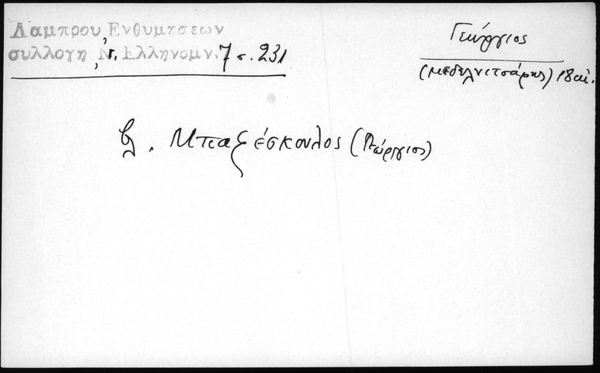 Λαμπρου, Ενθυμησεων
συλλογη, Ν. Ελληνομν. 7 σ. 231
Γεώργιος
(Μεδελνιτσάρης) 18 αἰ.
βλ. Μπαξέσκουλος (Γεώργιος)